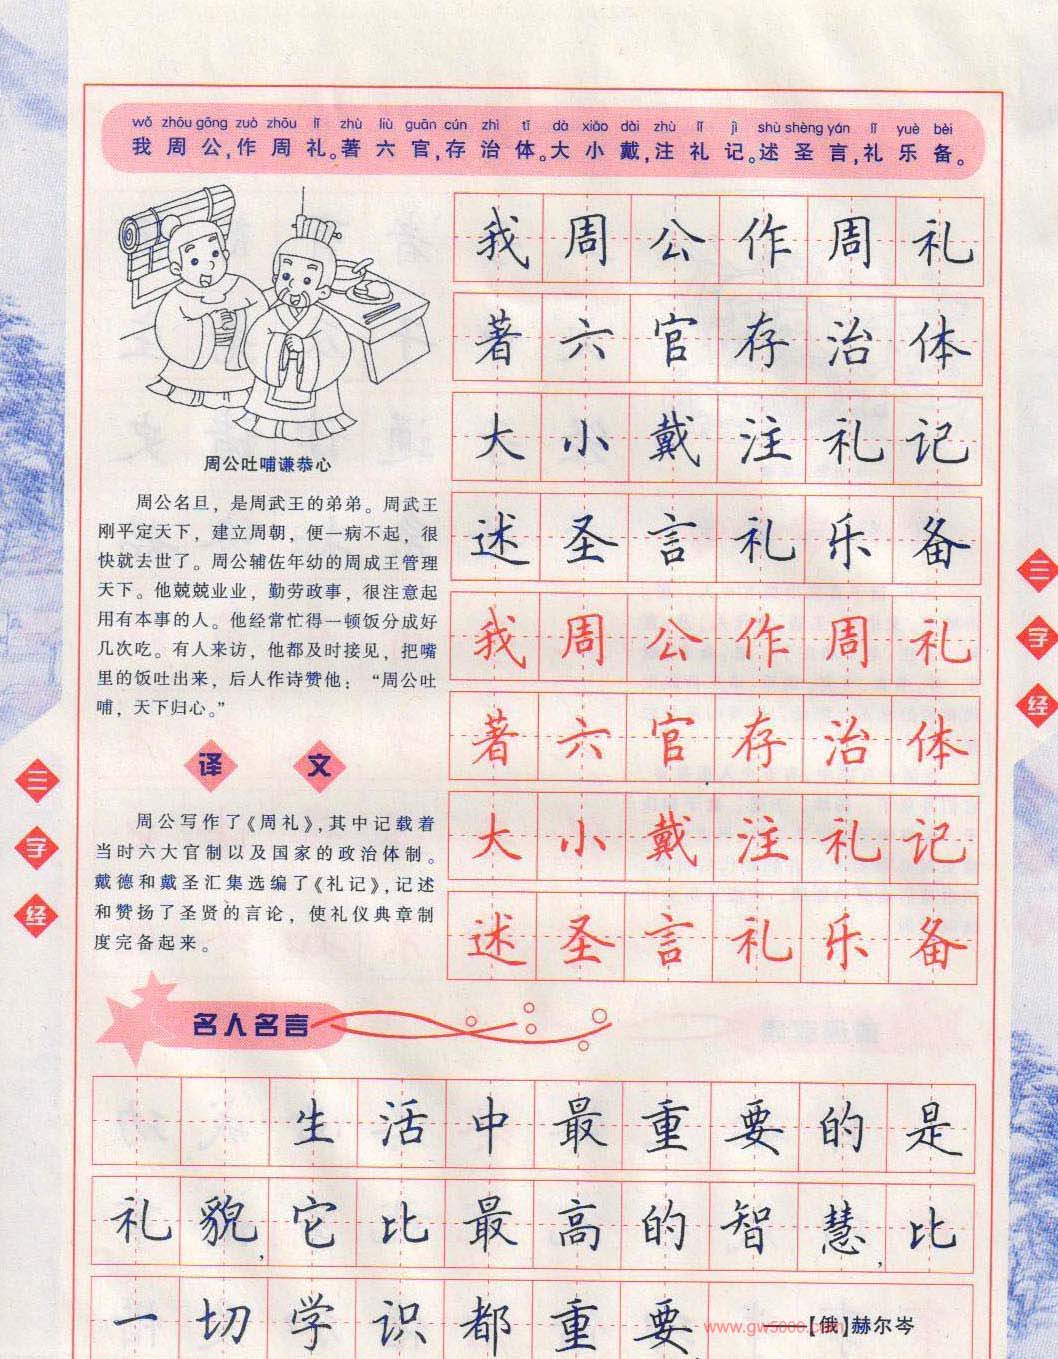 wǒ zhōu gōng zuò zhōu lǐ zhù liù guān cún zhì tǐ dà xiǎo dài zhù lǐ jì shù shèng yán lǐ yuè bèi
我周公,作周礼。著六官,存治体。大小戴,注礼记。述圣言,礼乐备。
我周公作周礼
著六官存治体
大小戴注礼记
述圣言礼乐备
我周公作周礼
著六官存治体
大小戴注礼记
述圣言礼乐备
周公吐哺谦恭心
周公名旦，是周武王的弟弟。周武王
刚平定天下，建立周朝，便一病不起，很
快就去世了。周公辅佐年幼的周成王管理
天下。他兢兢业业，勤劳政事，很注意起
用有本事的人。他经常忙得一顿饭分成好
几次吃。有人来访，他都及时接见，把嘴
里的饭吐出来，后人作诗赞他：“周公吐
哺，天下归心。”
译文
周公写作了《周礼》,其中记载着
当时六大官制以及国家的政治体制。
戴德和戴圣汇集选编了《礼记》,记述
和赞扬了圣贤的言论，使礼仪典章制
度完备起来。
三字经
三字经
名人名言
生活中最重要的是
礼貌,它比最高的智慧,比
一切学识都重要
——[俄]赫尔岑
www.gw5000.com